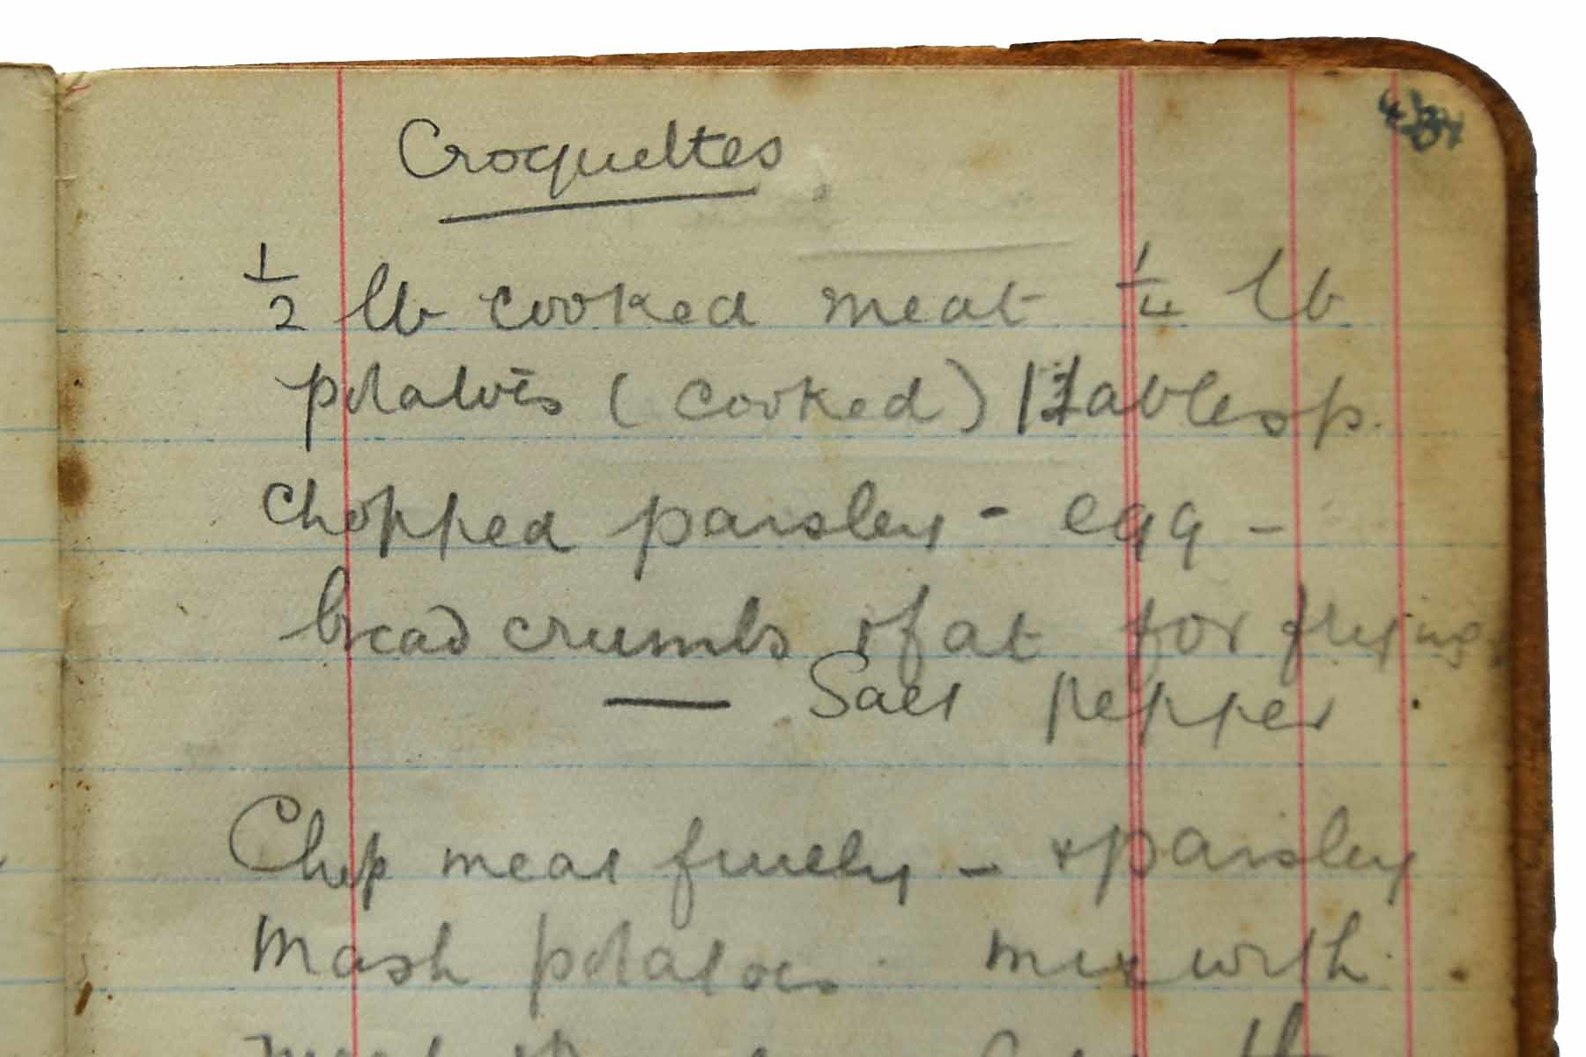 Croquettes
1/2 lb cooked meat 1/4 lb
potatoes (cooked) 1 tablesp.
chopped parsley - egg -
bread crumbs & fat for frying
— Salt pepper .
Chop meat finely - & parsley
Mash potatoes. mix with